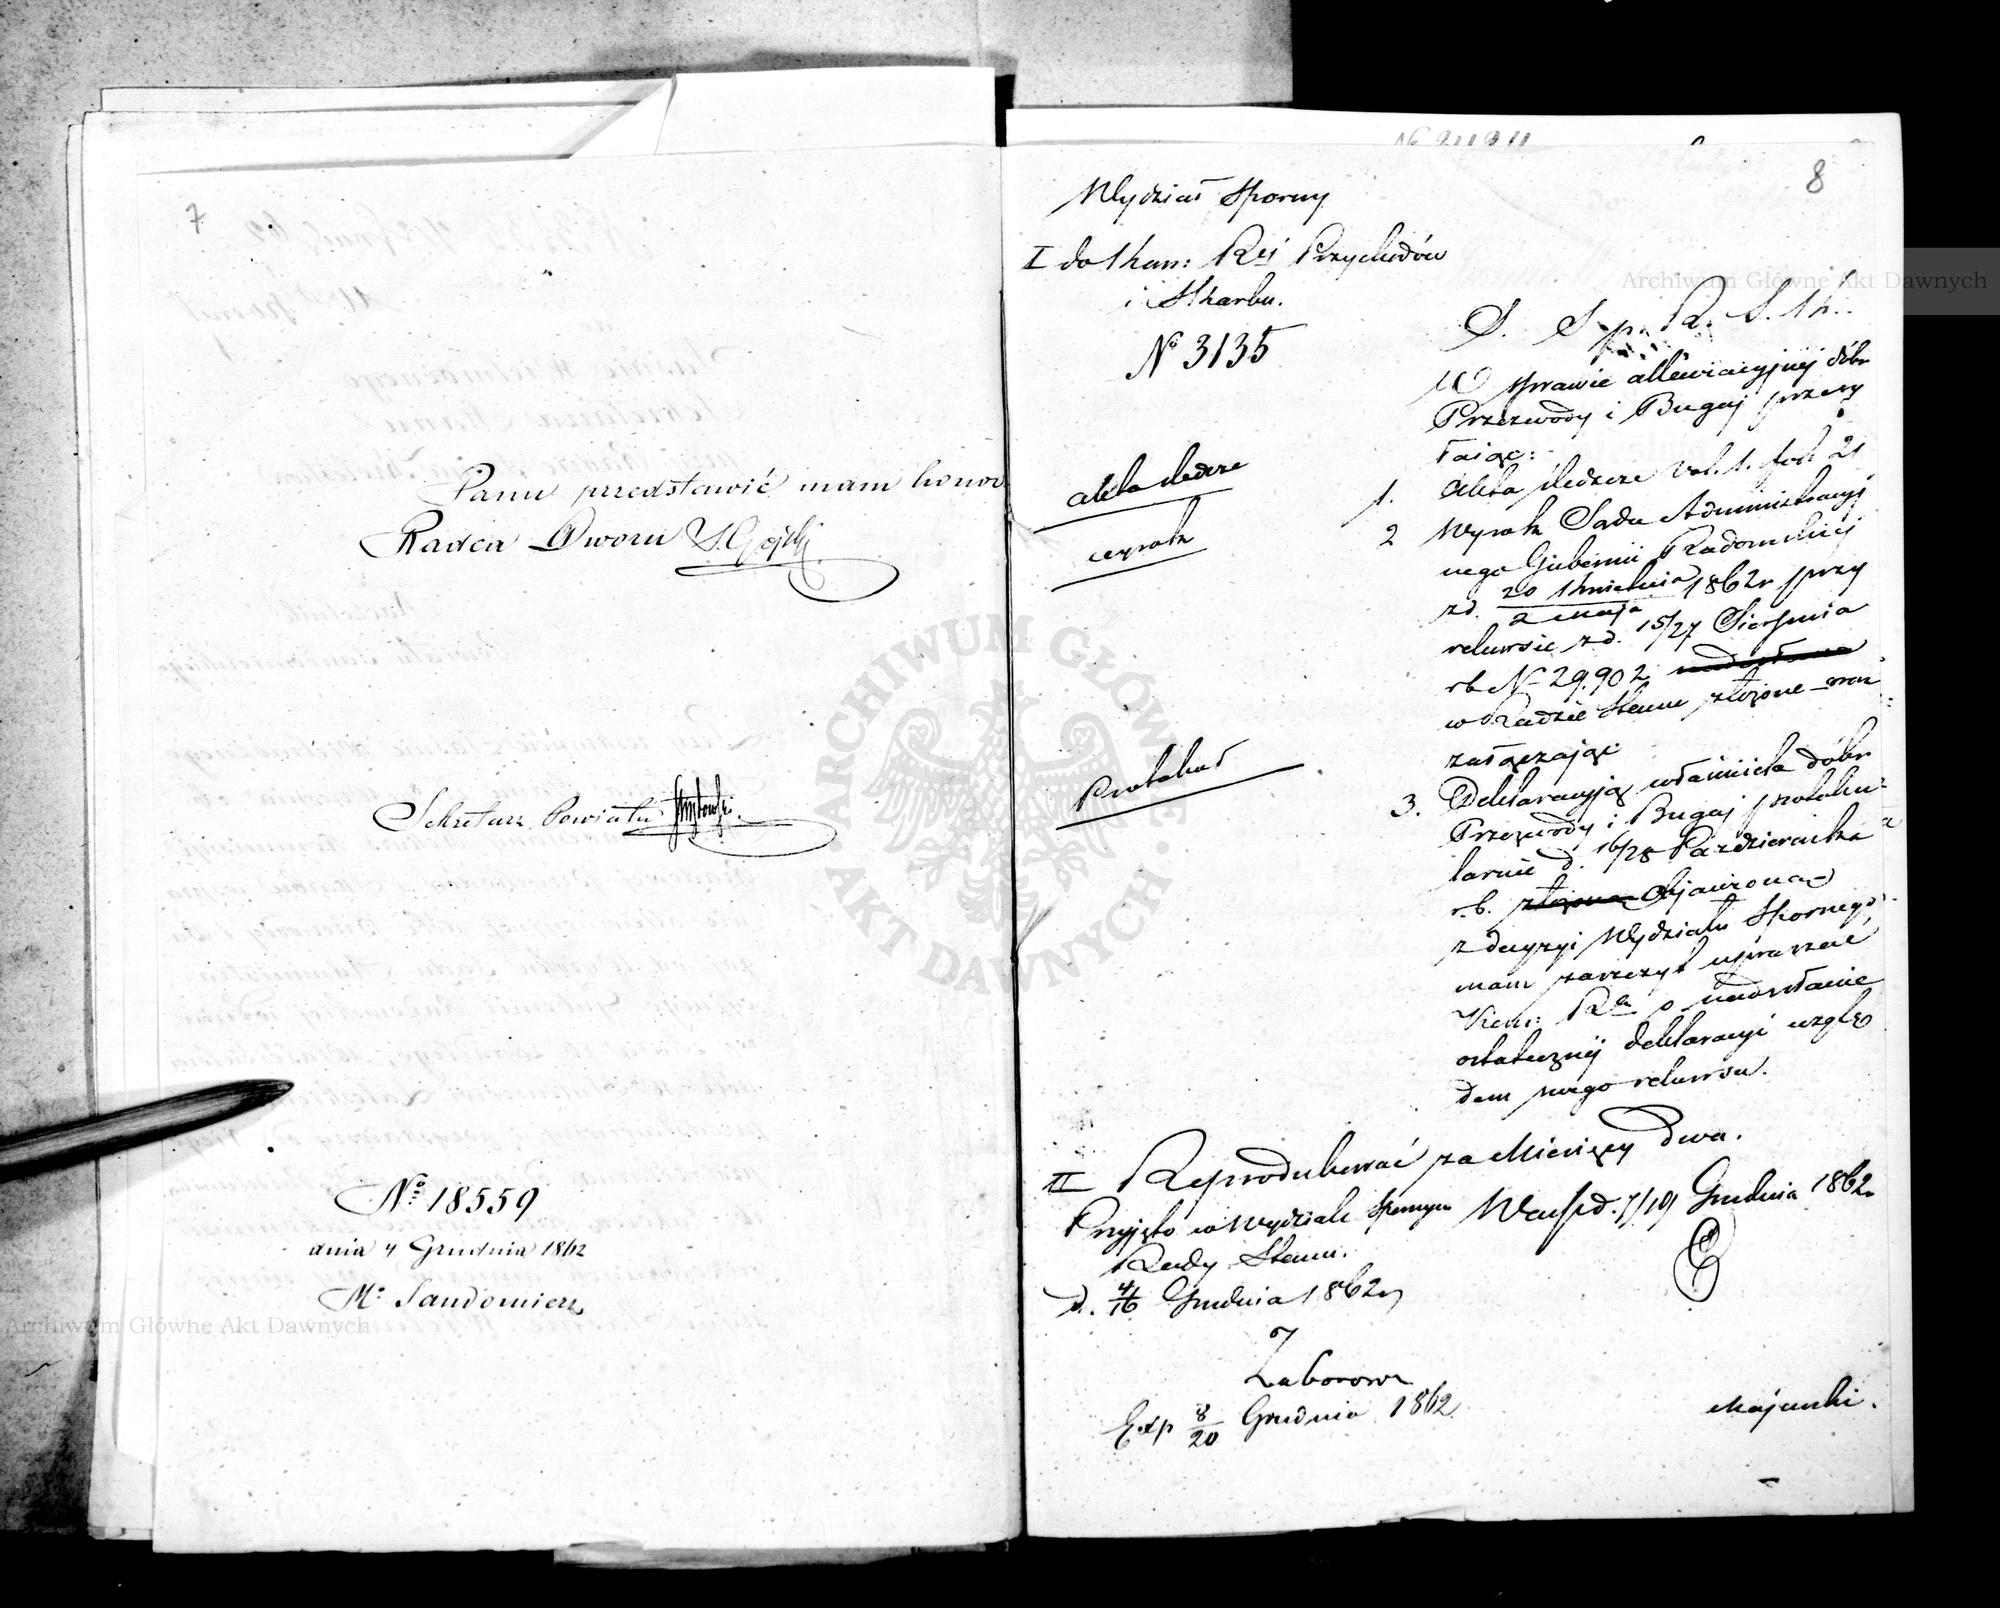 7
Panu przedstawić mam honor
Radca Dworu
Sekretarz Powiatu
№ 18559
dnia 4 Grudnia 1862
M. Sandomierz
8
Wydział Sporny
I do Kom: Rej Przychodów
i Skarbu.
№ 3135
S. S. p. R. S. K.
W sprawie allewiacyjnej dóbr
Przezwody i Bugaj przesy
łając:
akta śledcze
1. Akta śledcze Vol. 1. fol 21
wyrok
2 Wyrok Sądu Administracyj
nego Gubernii Radomskiej
z d. 20 Kwietnia / 2 Maja 1862 r przy
rekursie z d. 15/27 Sierpnia
r b № 29.902
w Radzie Stanu złożone oraz
załączając
Protokuł
3. Deklaracyją właściciela dóbr
Przezwody i Bugaj protoku-
larnie d. 16/28 Października
r. b. złożoną objawioną
z decyzyi Wydziału Spornego
mam zaszczyt upraszać
Kom: Rą o nadesłanie
ostatecznej deklaracyi wzglę
dem swego rekursu.
II Reprodukować za Miesięcy dwa.
Przyjęto w Wydziale Spornym
Rady Stanu.
d. 4/16 Grudnia 1862 r
Warsz d. 7/19 Grudnia 1862 r
Zaborowski
Exp 8/20 Grudnia 1862
Majewski.
Archiwum Główne Akt Dawnych
ARCHIWUM GŁÓWNE AKT DAWNYCH
Archiwum Główne Akt Dawnych